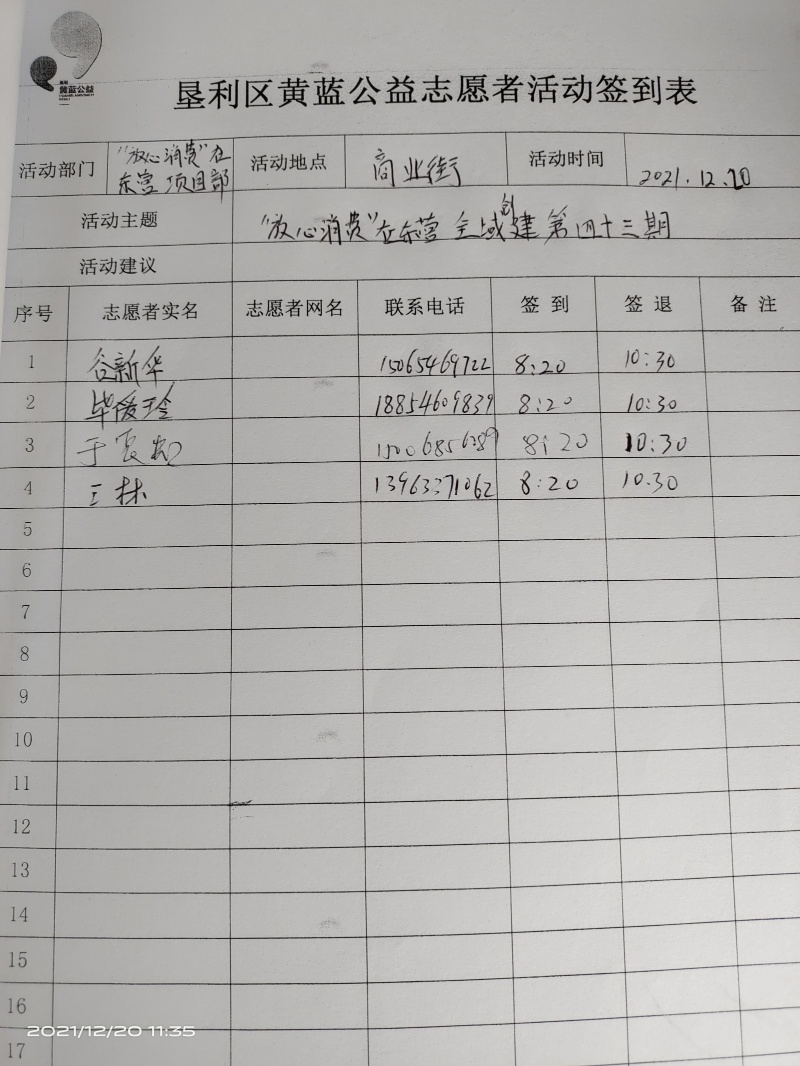 黄蓝公益
垦利区黄蓝公益志愿者活动签到表
活动部门 "放心消费"在东营项目部 活动地点 商业街 活动时间 2021.12.20
活动主题 "放心消费"在东营全域创建第四十三期
活动建议
序号 志愿者实名 志愿者网名 联系电话 签到 签退 备注
1 谷新华 15065469722 8:20 10:30
2 毕爱玲 18854609839 8:20 10:30
3 15006856289 8:20 10:30
4 王林 13963371062 8:20 10:30
5
6
7
8
9
10
11
12
13
14
15
16
2021/12/20 11:35
17